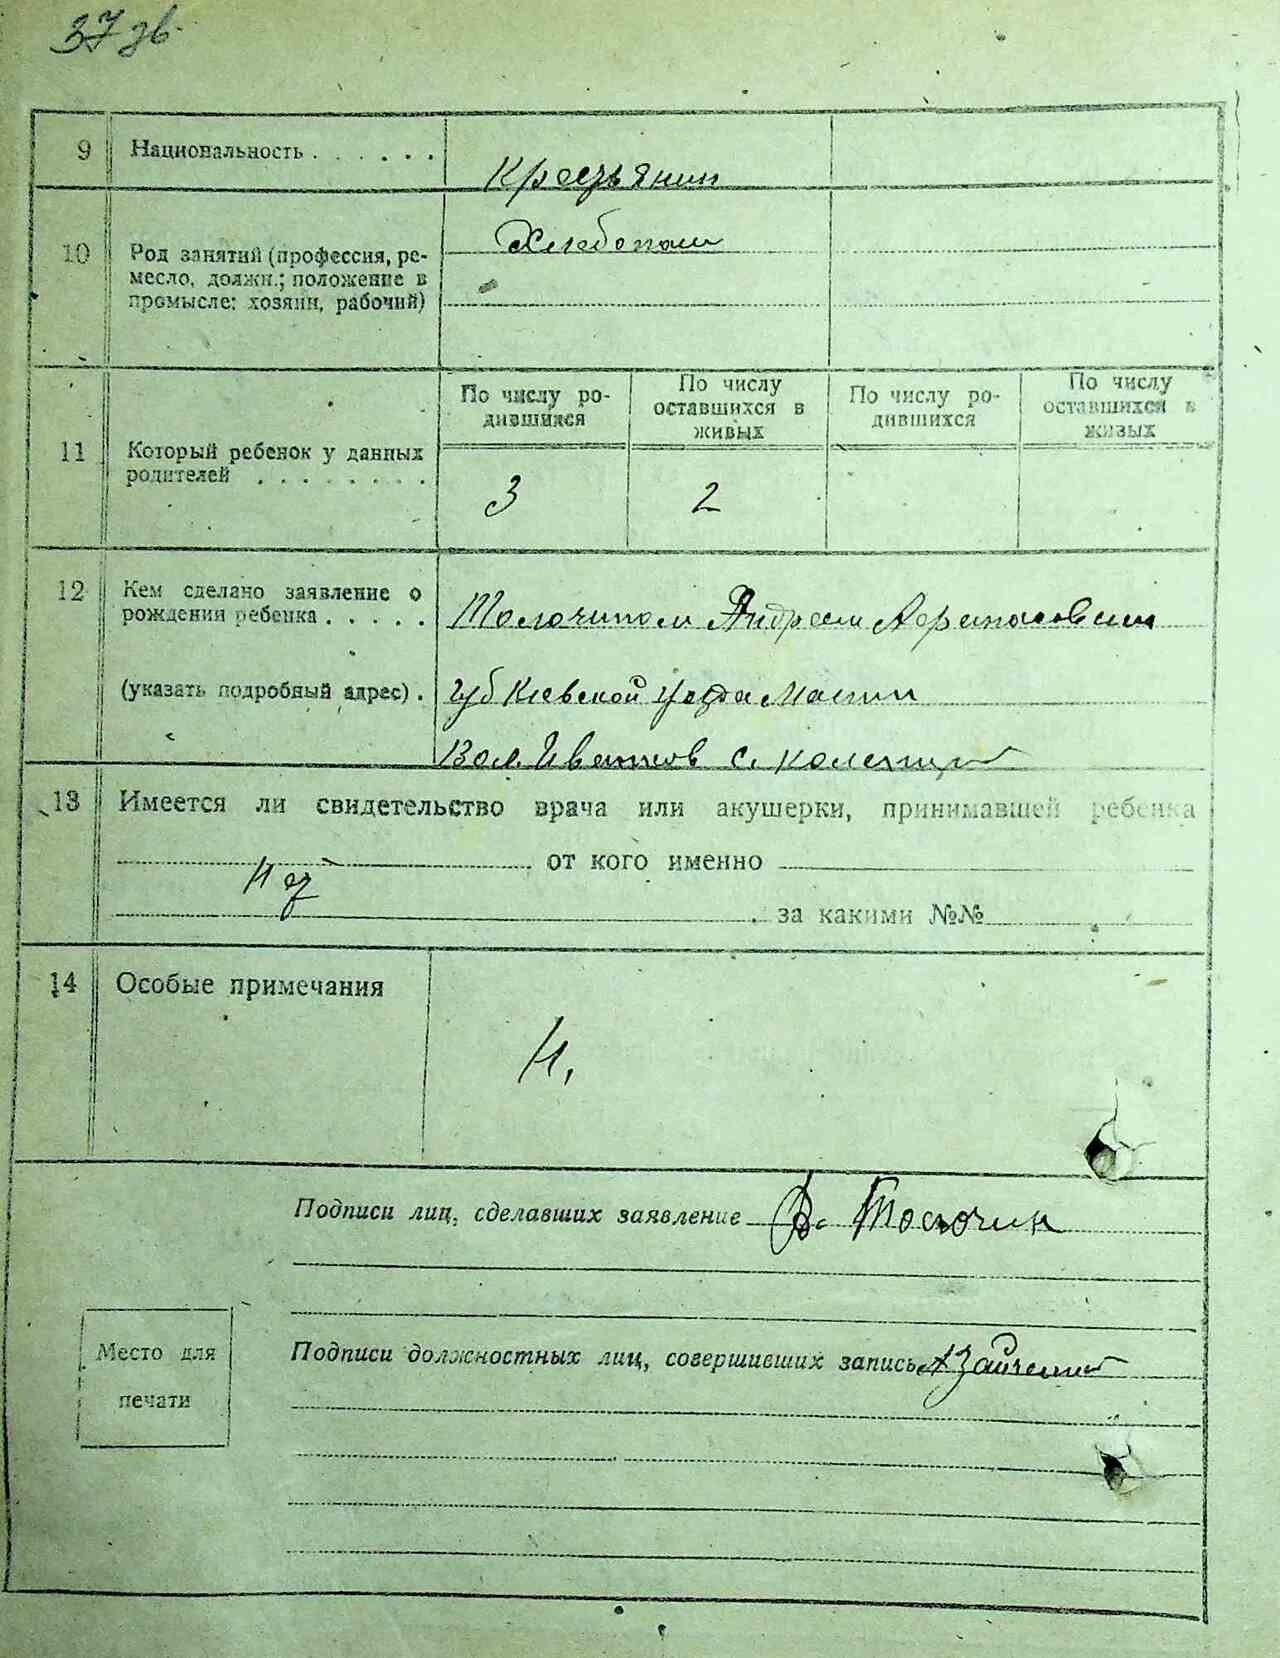 37 зв.
9 Национальность . . . . . .
Крестьянин
10 Род занятий (профессия, ре-
месло, должн.; положение в
промысле: хозяин, рабочий)
Хлебопаш
11 Который ребенок у данных
родителей . . . . . . . .
По числу ро-
дившихся
По числу
оставшихся в
живых
По числу ро-
дившихся
По числу
оставшихся в
живых
3 2
12 Кем сделано заявление о
рождения ребенка . . . . .
Толочином Андреем Афанасовим
(указать подробный адрес) .
губ Киевской уезда
Вол. Иванков с.
13 Имеется ли свидетельство врача или акушерки, принимавшей ребенка
от кого именно
нет
за какими №№
14 Особые примечания
Н,
Подписи лиц, сделавших заявление Толочин
Место для
печати
Подписи должностных лиц, совершивших запись